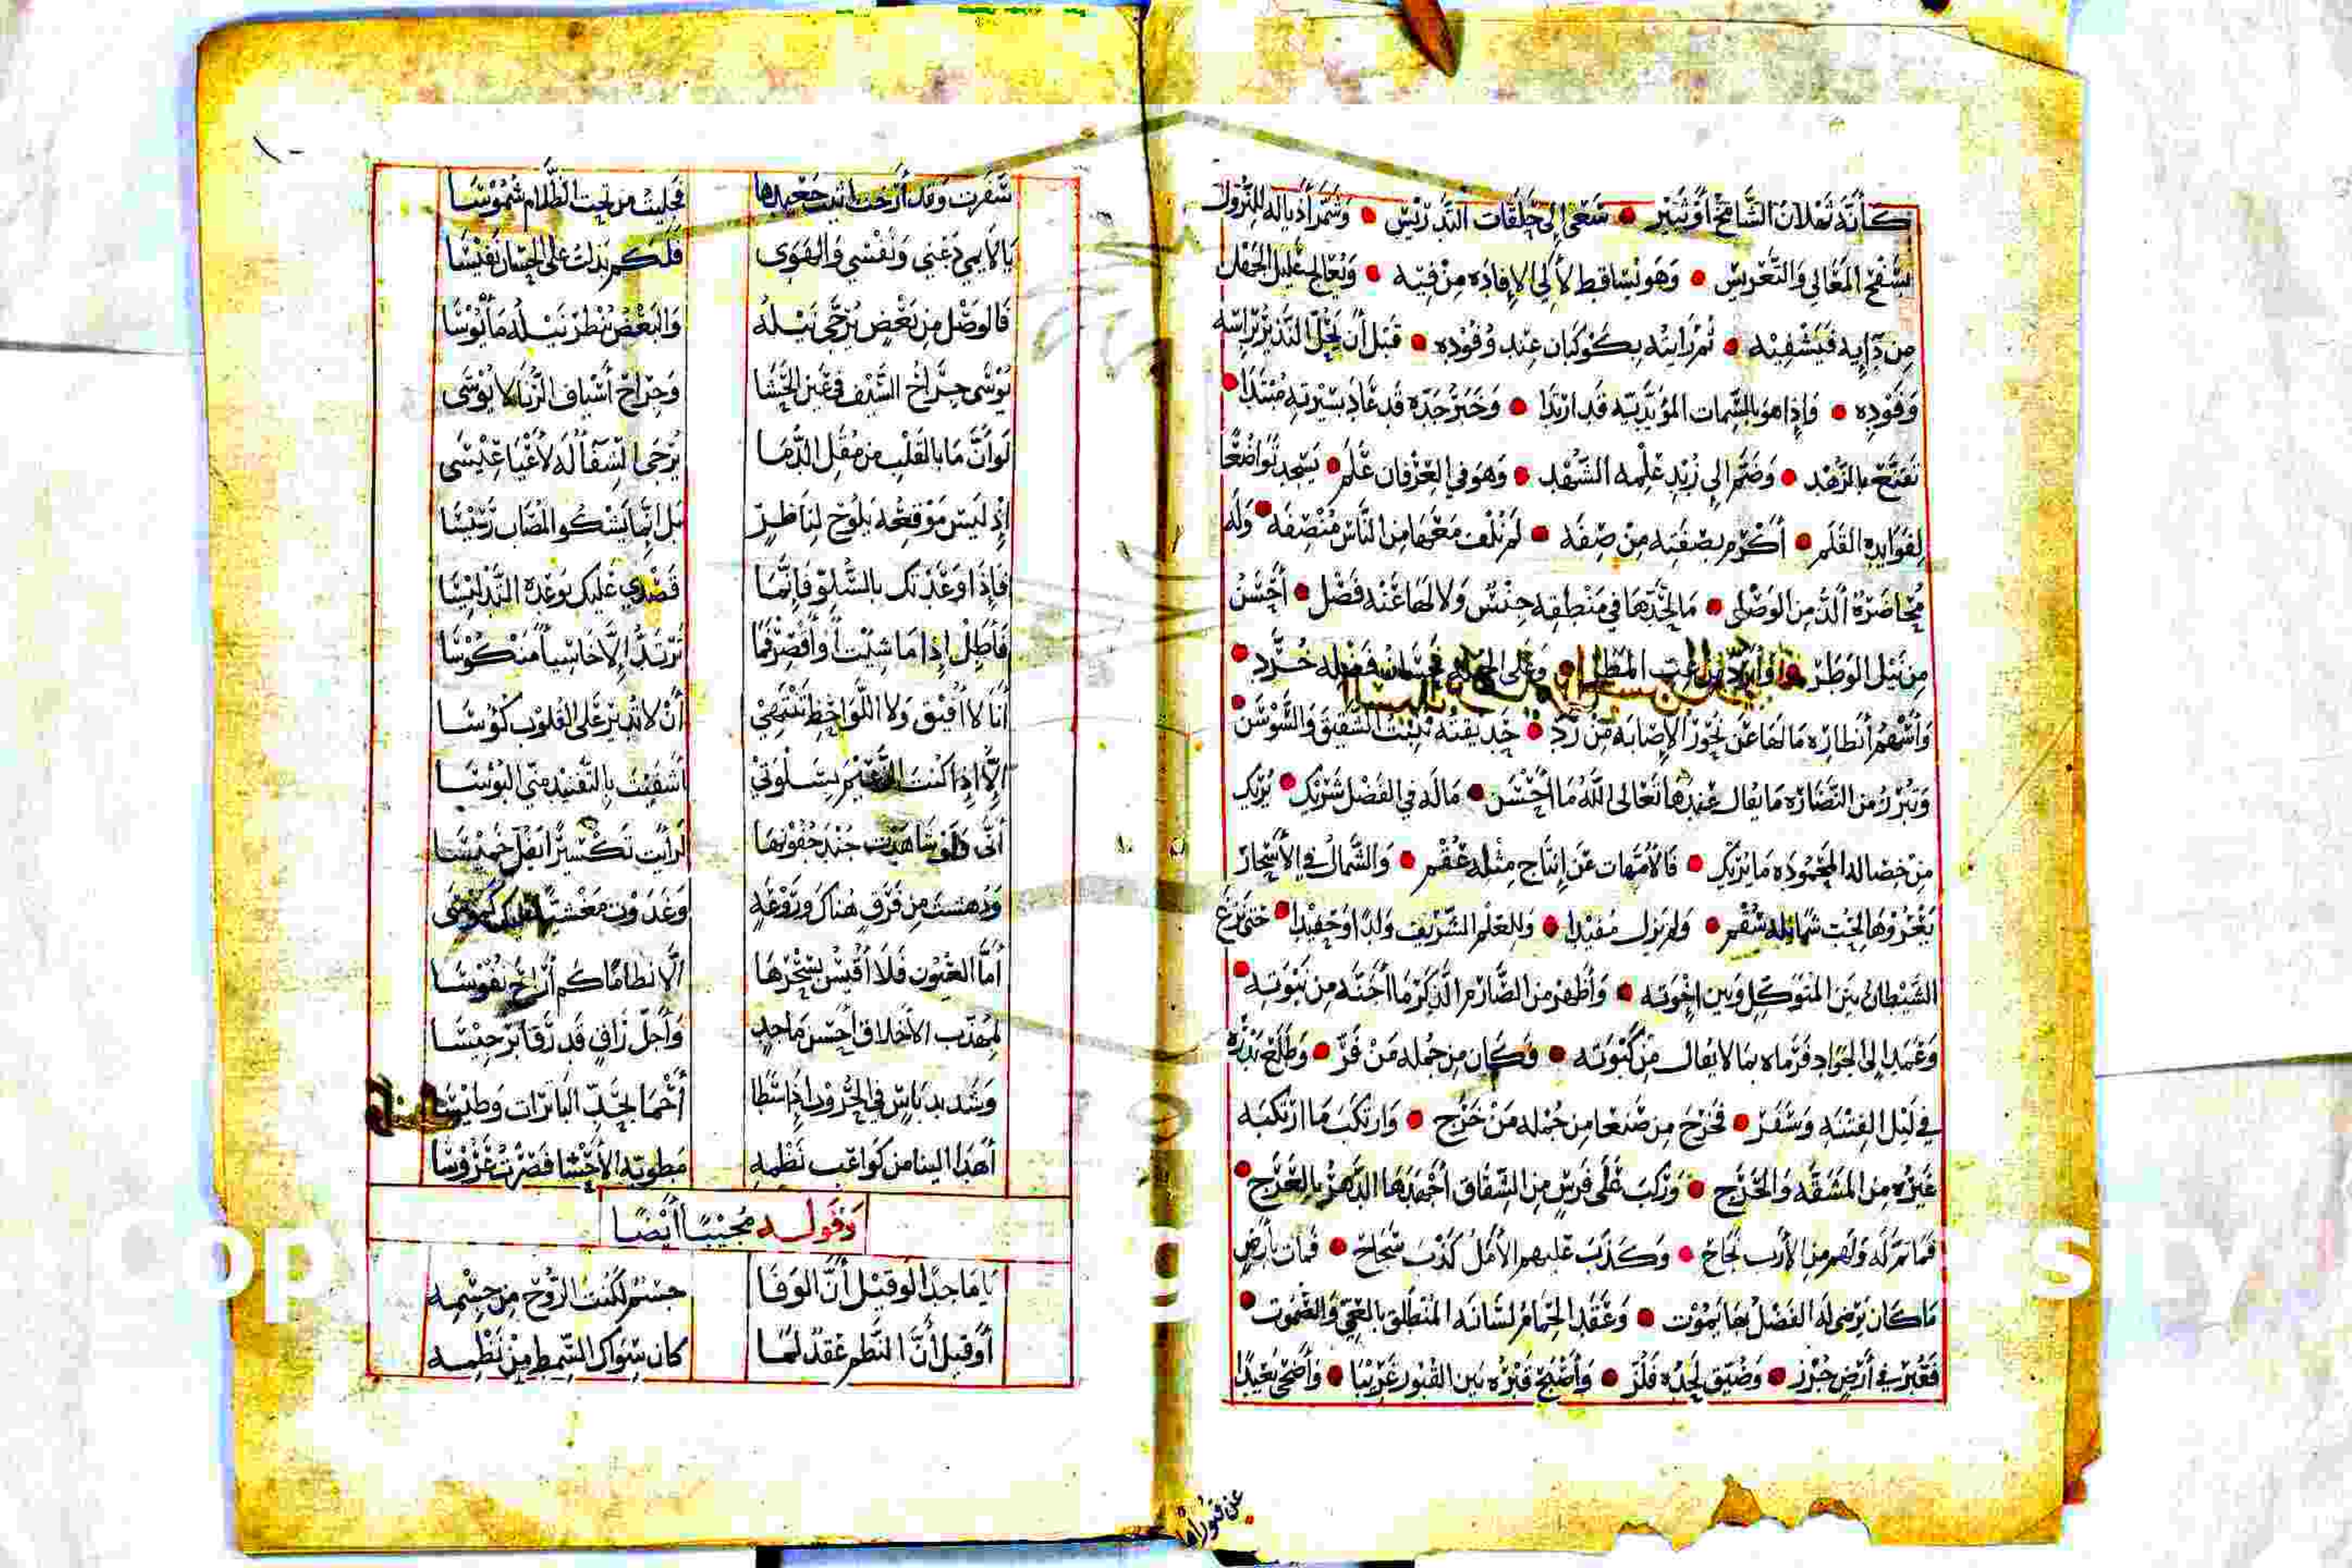 كَأَنَّهُ ثهلان الشَّامخ أَوْ ثَبير • سَعَى إِلى حَلَقات التَّدريس • وَشمَّر أذياله للنزول
بسفح المَعَالي وَالتَّعريس • وَهو يساقط لآلى الإفاده مِنْ فيه • وَيُعالج عليل الجهل
مِن دآيه فيَشفيه • ثُمَّ رأيته بكوكبان عند وُفُوده • قَبْل أَن يحلّ النذير براسه
وَفَوْدِه • وَإِذا هو بالسِّمات المؤيّديّه قد ارتدا • وَخبر جدّه قد عاد بسيرته مُبتدا •
تقنع بالزهد • وَضمّ إِلى زُبد علمه الشّهد • وَهو في العِرْفان عَلَم • يسجد تواضعًا
لِفوايده القلَم • أكرم بصفته مِنْ صِفَه • لم تلف معها مِن النَّاس مُنْصِفَه • وَله
مُحاضرَة أَلذّ مِن الوَصْل • مَا لحدّها في مَنْطقه جِنْس وَلا لها عَنْه فَصْل • أَحْسَن
مِن نيل الوَطَر • وَأبرد من غب المطر • وَعلى خُرَّد •
وَأَسْهم أنظاره مَا لها عَن نحور الإصابه مِنْ رَدّ • حديقته تنبت الشقيق وَالسَّوسن •
وَتبرز من النّضاره مَا يقال عندها تعالى الله مَا أَحْسَن • مَا لَه في الفضل شريك • يُريك
مِنْ خصاله المحموده مَا يريك • فالأمّهات عَن إنتاج مثله عُقْم • وَالشَّمال في الأسحار
يَعْرُوها لحبّ شمائله سُقْم • وَلم يزل مُفيدا • وَللعلم الشّريف وَلدًا وَحفيدا • حتى نزغ
الشّيطان بين المتوكّل وَبين إِخْوته • وَأظهر من الصّارم الذكر مَا أَجَنَّه مِن نَبْوته •
وَعمد إِلى الجواد فرماه بما لا يُقال مِن كَبْوته • وَكان مِن جمله مَنْ فَرّ • وَطلع بدره
في ليْل الفِتْنَه وَسَفَر • فخرج مِن صنعا مِن جُمله مَنْ خَرَج • وَارتكبَ مَا ارتكبه
غيره مِن المشقّه وَالحَرَج • وَركبَ عَلى فَرسٍ مِن الشِّقاق أَجهدها الدّهر بالعَرَج •
فما تمّ لَه وَلهم من الأَرب نَجَاح • وَكَذَبَ عَليهم الأمَل كَذْبَ سَجَاح • فمات بأرضٍ
مَا كان يَرضى له الفضل بها يَمُوت • وَعقَد الحِمام لسانه المنطلق بالعيّ وَالصُّموت •
فقُبر في أَرضٍ جُرز • وَضُيّق لحده فلُزّ • وَأصبح قبره بَين القُبور غَريبًا • وَأضحى بعيدًا
عن
١٠
سَفَرت وَقد أَرْخَت أثيث جعيدها فجليت من تحت الظّلام شُمُوسَا
يَا لايمي دَعْني وَنفْسي وَالهَوَى فلكم بذلت على الحِسَان نَفيْسَا
فَالوصْل مِن بَعْضٍ يُرجَّى نَيْلهُ وَالبَعْضُ يُنظر نَيْلهُ مَأْيُوسَا
يُوْسَى جِراح السّيف في غير الحَشَا وَجراح أَسْياف الرّنا لا يُوْسَى
لَو أَنَّ مَا بالقلب مِن مُقل الدُّمَا يُرْجَى الشفاء لَه لأَعْيَا عِيْسَى
إِذ لَيسَ مَوْقعُه يَلُوح لِنَاظرٍ بل إِنّما يَشكو المُصَاب رَسِيْسَا
فَإِذا وَعَدْتك بالسُّلوّ فَإِنّمَا قصْدِي عَليك بوَعْده التَّدليْسَا
فَأَطِلْ إِذا مَا شئت أَو أَقصرْ فمَا تَرتدّ إِلاَّ خاسِيًا مَنْكُوسَا
أَنا لاَ أُفيق وَلا اللّواحظ تَنْتَهِيْ أَنْ لا تدير عَلى القلوب كؤُسَا
إِلاَّ إِذا كنت بسَلْوَتيْ أشفيت بالتّفنيد منّي البُوْسَا
أَنَّى وَلَو شاهدت جند جُفونها لَرأيت تكسيرًا يَفلّ خميْسَا
وَدهشت مِن فَرَقٍ هُناك وَرَوْعَةٍ وَغدَوْت مَغشيّا مُوسَى
أَمَّا العيُون فَلا أَقيْسُ بسِحْرها إِلاَّ نظامًا كم أَراحَ نفُوسَا
لِمهذّب الأَخلاق أَحْسَن مَاجدٍ وَأَجلّ رَاقٍ قد رَقا بَرجيْسَا
وَشديد بَاسٍ في الحُروب إِذا سَطَا أَحْمَا بحَدّ الباترات وَطيْسَا
أَهدَا إلينا من كواعب نَظْمِهِ مَطويّة الأَحْشا قَصَرْت عَرُوسَا
وَقوله مُجيْبًا أَيْضًا
يَا مَاجدًا لَو قيْل أَنّ الوَفَا جسْمٌ لكُنتَ الرُّوْح مِن جسْمِهِ
أَو قيل أَنَّ النَّظم عِقْدٌ لَمَا كان سِوَاك السِّمط مِنْ نَظْمِهِ